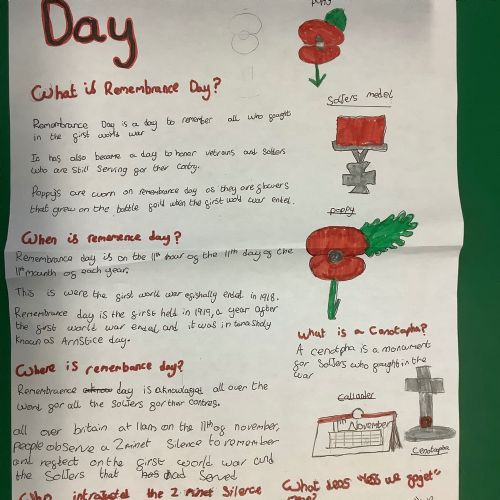 Day
What is Remembrance Day?
Remombrance Day is a day to remember all who fought
in the first world war
It has also became a day to honor vetrans and solters
who are still serving for ther contry.
Poppys are worn on remembrance day as they are flowers
that grew on the battle feild when the first world war endel.
When is rememence day?
Remembrance day is on the 11th hour of the 11th day of the
11th mounth of each year.
This is were the first world war ended in 1918.
Remembrance day is the first held in 1919, a year after
the first world war endel, and it was
known as Armstice day.
Where is remembance day?
Remembraence day is all over the
world for all the solters for ther contres.
all over britain at 11am on the 11th of november,
people observe a 2 minet silence to remember
and reflect on the first world war and
the solters that has served
Who the 2 minet silence
poppy
Solters medel
poppy
What is a Cenotapha?
A cenotpha is a monument
for solters who fought in the
war
Callander
11th November
Cenotapha
What deas "less we forget"